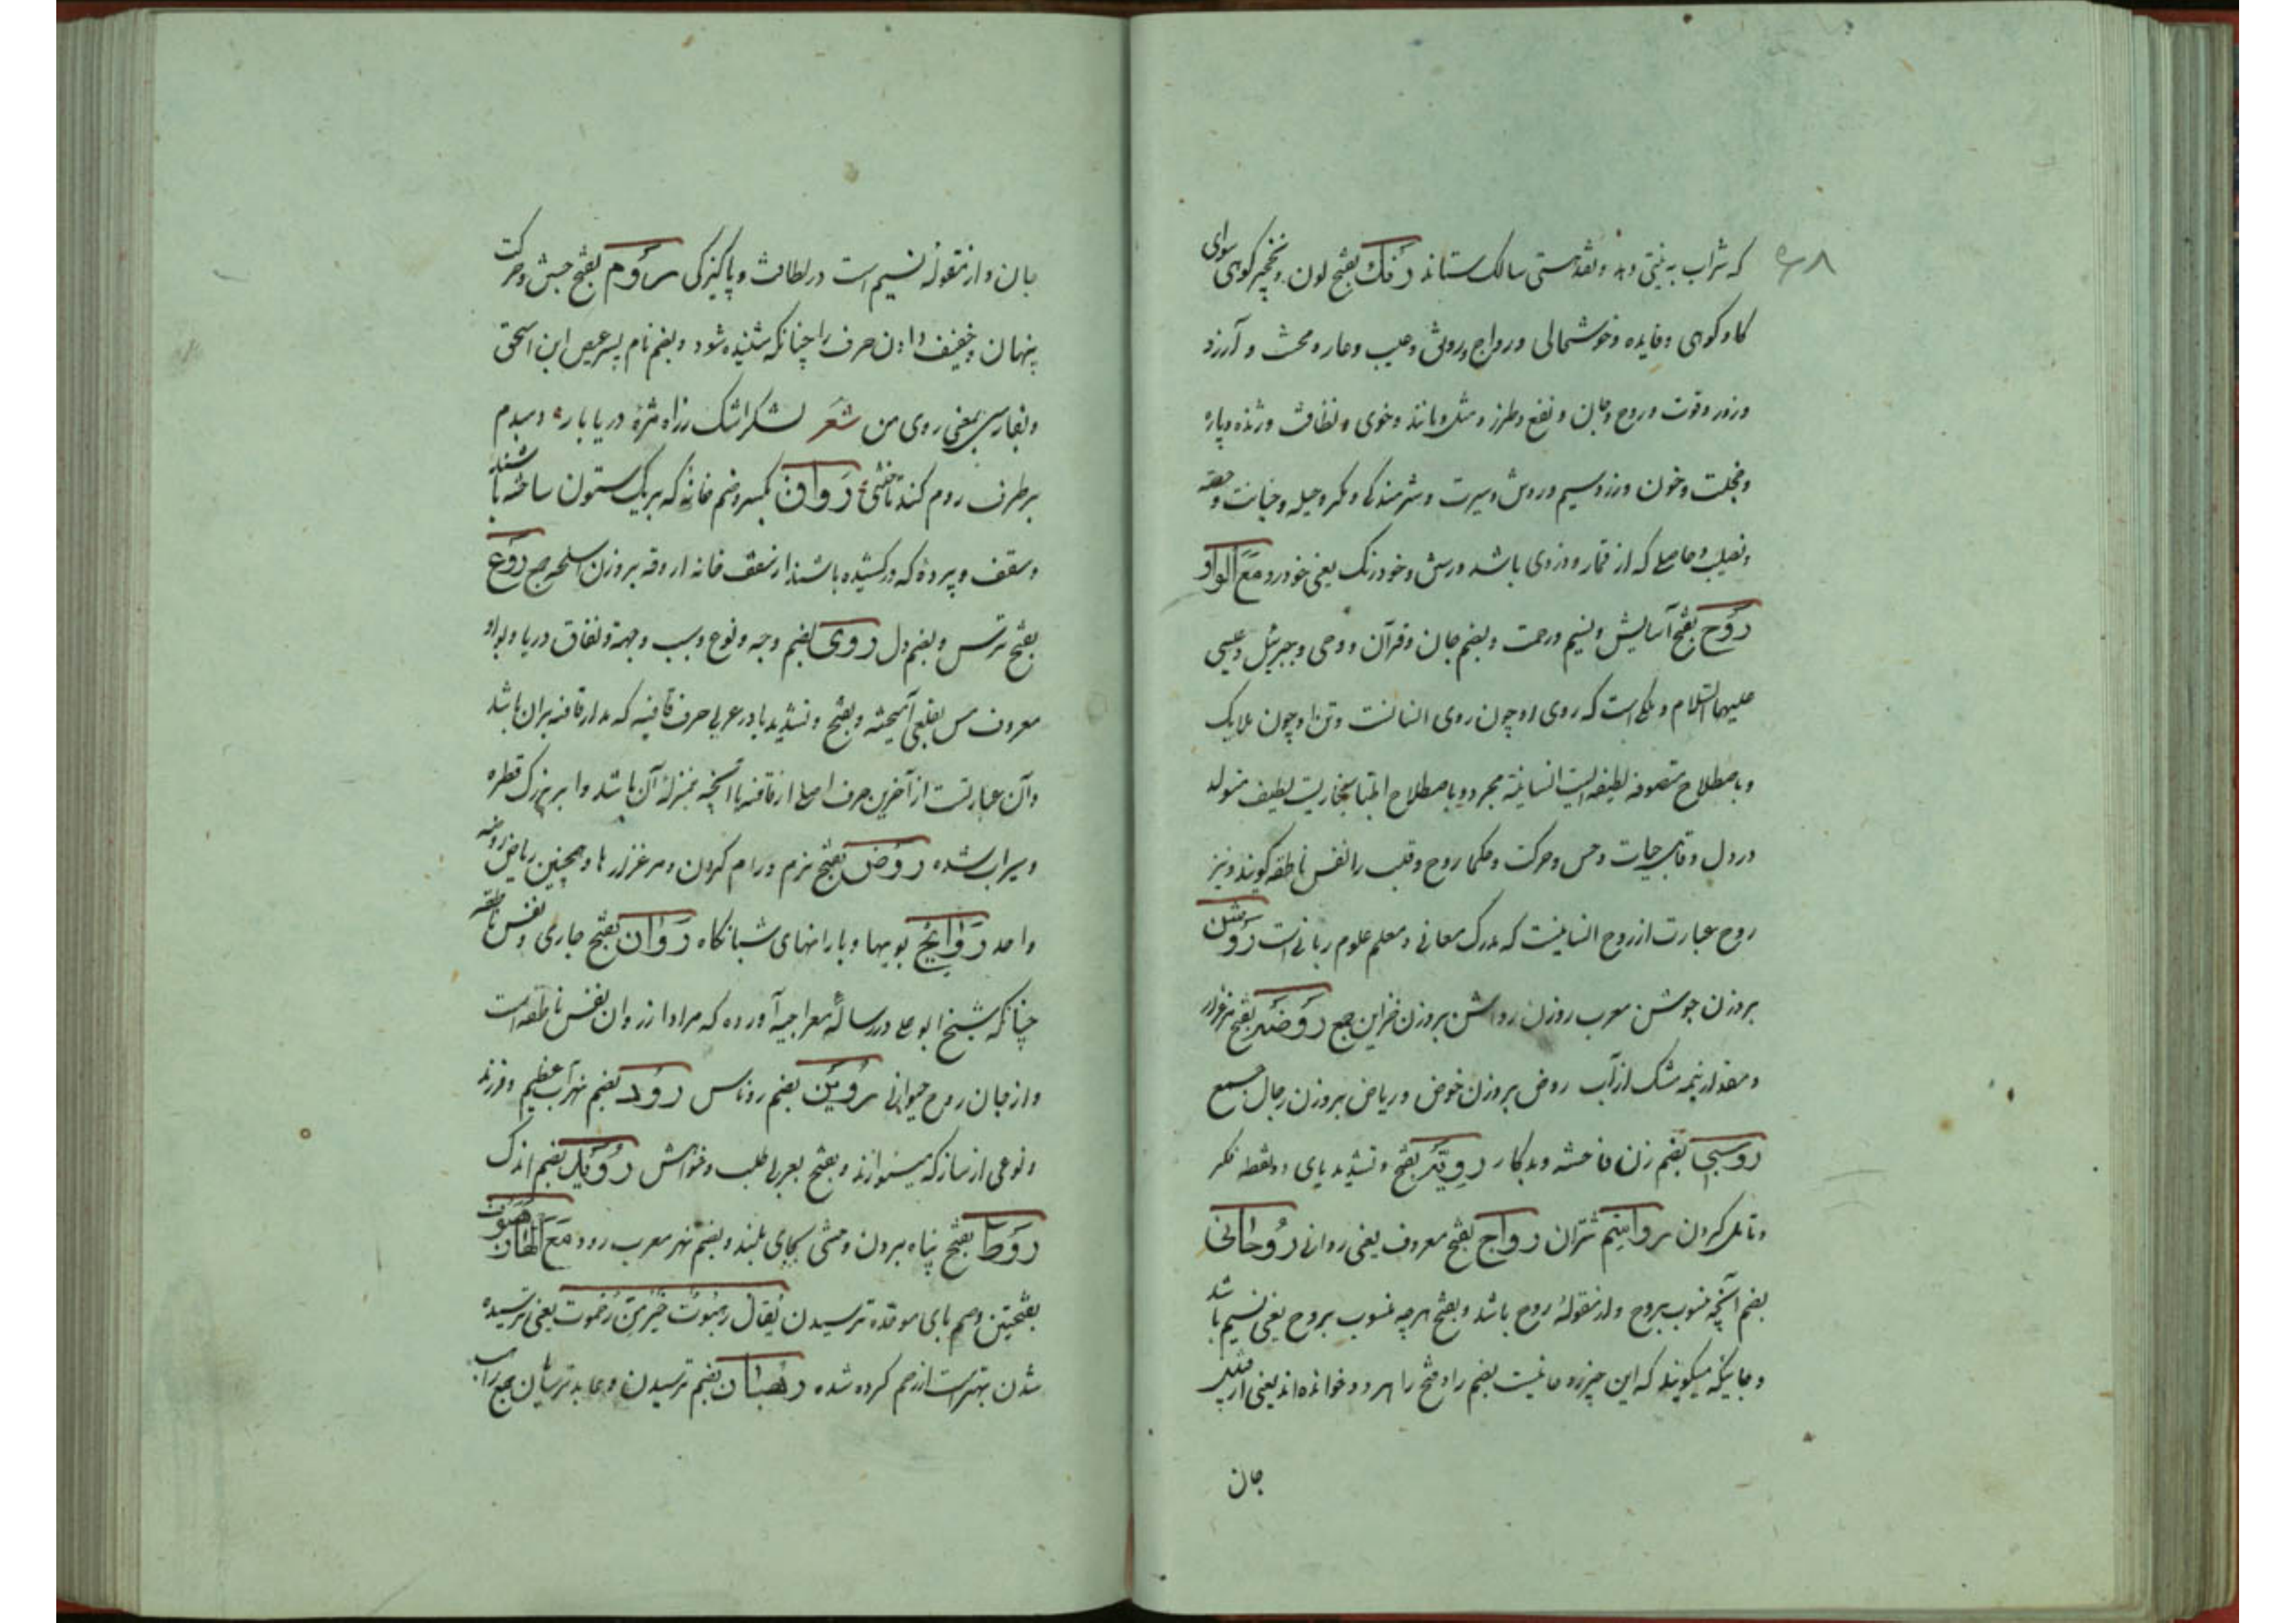 که شراب نیستی دهد و نقد هستی سالک ستاند رنگ بفتح لون و نخچیر کوهی سوای
گاو کوهی و فایده و خوشحالی و رواج و رونق و عیب و عار و محنت و آرزو
و زور و قوت و روح و جان و نفع و طرز و مثل و مانند و خوی و نظافت و ژنده و پاره
و خجلت و خون و زر و سیم و روش و سیرت و شرمندگی و مکر و حیله و خیانت و حصه
و نصیب و حاصلی که از قمار و دزدی باشد و رستن و خودرنگ یعنی خودرو مع الواو
روح بفتح آسایش و نسیم و رحمت و بضم جان و قرآن و وحی و جبرئیل و عیسی
علیهما السلام و ملکی است که روی او چون روی انسانست و تن او چون ملایک
و باصطلاح متصوفه لطیفه ایست انسانیة مجرد و باصطلاح اطبا بخاریست لطیف متولد
در دل و قابل حیات و حس و حرکت و حکما روح و قلب را نفس ناطقه گویند و نیز
روح عبارت از روح انسانیست که مدرک معانی و معلم علوم ربانی است روشن
بروزن جوشن معرب روزن رواشن بروزن خزاین جمع روضه بفتح مرغزار
و مقدار نیمه مشک از آب روض بروزن خوض و ریاض بروزن رجال جمع
روسپی بضم زن فاحشه و بدکار رویّة بفتح و تشدید یای دو نقطه فکر
و تامل کردن رواسیم شتران رواج بفتح معروف یعنی روانی روحانی
بضم آنچه منسوب بروح و از مقوله روح باشد و بفتح هرچه منسوب بروح یعنی نسیم باشد
و جاییکه میگویند که این چیز روحانیست بضم را و فتح را هر دو خوانده اند یعنی از قبیل
جان
جان و از مقوله نسیم است در لطافت و پاکیزگی روم بفتح جنبش و حرکت
پنهان و خفیف دادن حرف را چنانکه شنیده شود و بضم نام پسر عیص ابن اسحق
و بفارسی بمعنی روی من شعر لشکر اشک زراه مژه دریا باره و مبدم
بر طرف روم کند تاختنی رواق بکسر و ضم خانه که بریک ستون ساخته باشند
و سقف و پرده که در کشیده باشند از سقف خانه اروقه بروزن اسلحه جمع روع
بفتح ترس و بضم دل روی بضم وجه و نوع و سبب و جهة و نفاق و ریا و بواو
معروف مس بقلعی آمیخته و بفتح و تشدید یا در عربی حرف قافیه که مدار قافیه بران باشد
و آن عبارتست از آخرین حرف اصلی از قافیه یا آنچه بمنزله آن باشد و ابر بزرگ قطره
و سیراب شده روض بفتح نرم و رام کردن و مرغزارها و همچنین ریاض روضه
واحد روایح بویها و بارانهای شبانگاه روان بفتح جاری و نفس ناطقه
چنانکه شیخ ابو علی در رساله معراجیه آورده که مراد از روان نفس ناطقه است
و از جان روح حیوانی روین بضم روناس رود بضم نهر آب عظیم و فرزند
و نوعی از ساز که مینوازند و بفتح بعربی طلب و خواهش روید بضم اندک
روط بفتح پناه بردن وحشی بجای بلند و بضم نهر معرب رود مع الهاء رهبوت
بفتحتین و ضم بای موحده ترسیدن یقال رهبوت خیر من رحموت یعنی ترسیده
شدن بهتر است از رحم کرده شده رهبان بضم ترسیدن و عابد ترسایان جمع راهب